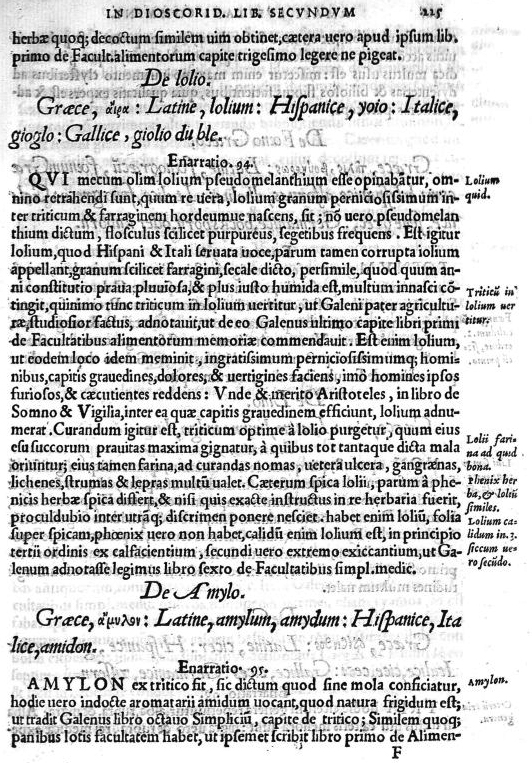 IN DIOSCORID. LIB. SECVNDVM 225
herbæ quoq; decoctum similem uim obtinet, cætera uero apud ipsum lib.
primo de Facult. alimentorum capite trigesimo legere ne pigeat.
De lolio.
Græce, αἶρα: Latine, lolium: Hispanice, yoio: Italice,
gioglo: Gallice, giolio du ble.
Enarratio. 94.
QVI mecum olim lolium pseudomelanthium esse opinabātur, om-
nino retrahendi sunt, quum re uera, lolium granum perniciosissimum in-
ter triticum & farraginem hordeumue nascens, sit; nō uero pseudomelan
thium dictum, flosculus scilicet purpureus, segetibus frequens. Est igitur
lolium, quod Hispani & Itali seruata uoce, parum tamen corrupta iolium
appellant, granum scilicet farragini, secale dicto, persimile, quod quum an-
ni constitutio praua: pluuiosa, & plus iusto humida est, multum innasci cō-
tingit, quinimo tunc triticum in lolium uertitur, ut Galeni pater agricultu-
ræ, studiosior factus, adnotauit, ut de eo Galenus ultimo capite libri primi
de Facultatibus alimentorum memoriæ commendauit. Est enim lolium,
ut eodem loco idem meminit, ingratissimum perniciosissimumq; homi-
nibus, capitis grauedines, dolores, & uertigines faciens, imò homines ipsos
furiosos, & cæcutientes reddens: Vnde & merito Aristoteles, in libro de
Somno & Vigilia, inter ea quæ capitis grauedinem efficiunt, lolium adnu-
merat. Curandum igitur est, triticum optime à lolio purgetur, quum eius
esu succorum prauitas maxima gignatur, à quibus tot tantaque dicta mala
oriuntur; eius tamen farina, ad curandas nomas, uetera ulcera, gangrænas,
lichenes, strumas & lepras multū ualet. Cæterum spica lolii, parum à phe-
nicis herbæ spica differt, & nisi quis exacte instructus in re herbaria fuerit,
proculdubio inter utrāq; discrimen ponere nesciet. habet enim loliū, folia
super spicam, phœnix uero non habet, calidū enim lolium est, in principio
tertii ordinis ex calfacientium, secundi uero extremo exiccantium, ut Ga-
lenum adnotasse legimus libro sexto de Facultatibus simpl. medic.
De Amylo.
Græce, ἄμυλον: Latine, amylum, amydum: Hispanice, Ita
lice, amidon.
Enarratio. 95.
AMYLON ex tritico fit, sic dictum quod sine mola conficiatur,
hodie uero indocte aromatarii amidum uocant, quod natura frigidum est;
ut tradit Galenus libro octauo Simpliciū, capite de tritico; Similem quoq;
panibus lotis facultatem habet, ut ipsemet scribit libro primo de Alimen-
F
Lolium
quid.
Triticū in
lolium uer
titur.
Lolii fari-
na ad quid
bona.
Phenix her
ba, & lolii
similes.
Lolium ca-
lidum in. 3.
siccum ue-
ro secūdo.
Amylon.